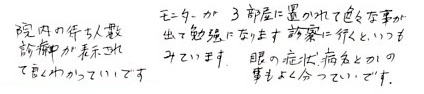 院内の待ち人数
診療中が表示され
て良くわかっていいです
モニターが 3部屋に置かれて色々な事が
出て勉強になります 診察に行くと、いつも
みています. 眼の症状. 病名とかの
事もよく分っていいです.